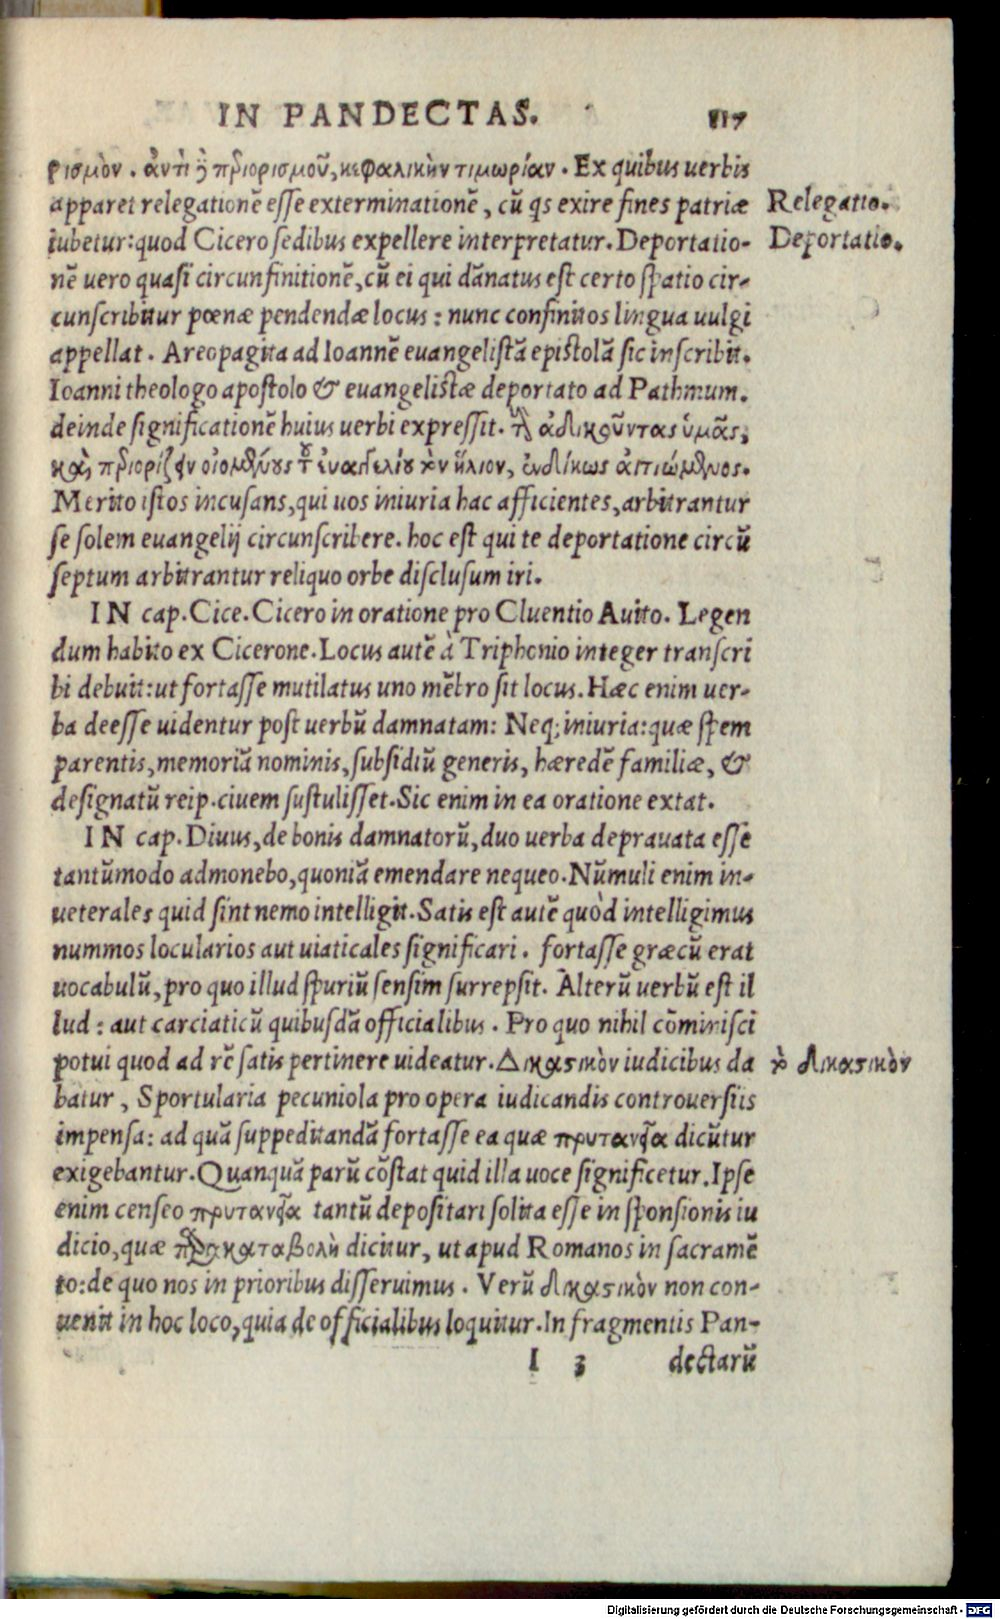 IN PANDECTAS. 117
ρισμὸν. ἀντὶ τοῦ περιορισμοῦ, κεφαλικὴν τιμωρίαν. Ex quibus uerbis
apparet relegationē esse exterminationē, cū qs exire fines patriæ
Relegatio.
iubetur: quod Cicero sedibus expellere interpretatur. Deportatio-
Deportatio.
nē uero quasi circunfinitionē, cū ei qui dānatus est certo spatio cir-
cunscribitur pœnæ pendendæ locus: nunc confinitos lingua uulgi
appellat. Areopagita ad Ioannē euangelistā epistolā sic inscribit.
Ioanni theologo apostolo & euangelistæ deportato ad Pathmum.
deinde significationē huius uerbi expressit. ἀδικοῦντας ὑμᾶς,
καὶ περιορίζειν οἰομένους τοῦ εὐαγγελίου τὸν ἥλιον, ἐνδίκως αἰτιώμενος.
Merito istos incusans, qui uos iniuria hac afficientes, arbitrantur
se solem euangelij circunscribere. hoc est qui te deportatione circū
septum arbitrantur reliquo orbe disclusum iri.
IN cap. Cice. Cicero in oratione pro Cluentio Auito. Legen
dum habito ex Cicerone. Locus autē à Triphonio integer transcri
bi debuit: ut fortasse mutilatus uno mēbro sit locus. Hæc enim uer-
ba deesse uidentur post uerbū damnatam: Neq; iniuria: quæ spem
parentis, memoriā nominis, subsidiū generis, hæredē familiæ, &
designatū reip. ciuem sustulisset. Sic enim in ea oratione extat.
IN cap. Diuus, de bonis damnatorū, duo uerba deprauata esse
tantūmodo admonebo, quoniā emendare nequeo. Nūmuli enim in-
ueterales quid sint nemo intelligit. Satis est autē quòd intelligimus
nummos locularios aut uiaticales significari. fortasse græcū erat
uocabulū, pro quo illud spuriū sensim surrepsit. Alterū uerbū est il
lud: aut carciaticū quibusdā officialibus. Pro quo nihil cōminisci
potui quod ad rē satis pertinere uideatur. Δικαστικὸν iudicibus da
τὸ δικαστικὸν
batur, Sportularia pecuniola pro opera iudicandis controuersiis
impensa: ad quā suppeditandā fortasse ea quæ πρυτανεῖα dicūtur
exigebantur. Quanquā parū cōstat quid illa uoce significetur. Ipse
enim censeo πρυτανεῖα tantū depositari solita esse in sponsionis iu
dicio, quæ παρακαταβολὴ dicitur, ut apud Romanos in sacramē
to: de quo nos in prioribus disseruimus. Verū δικαστικὸν non con-
uenit in hoc loco, quia de officialibus loquitur. In fragmentis Pan-
I 3 dectarū
Digitalisierung gefördert durch die Deutsche Forschungsgemeinschaft - DFG